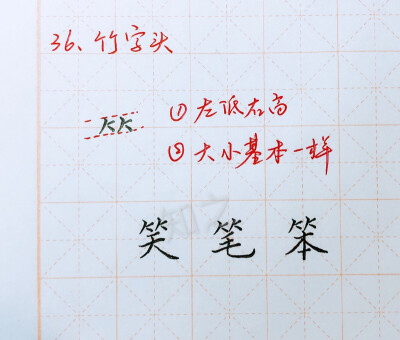 36、竹字头
⺮ ①左低右高
②大小基本一样
知之
笑 笔 笨